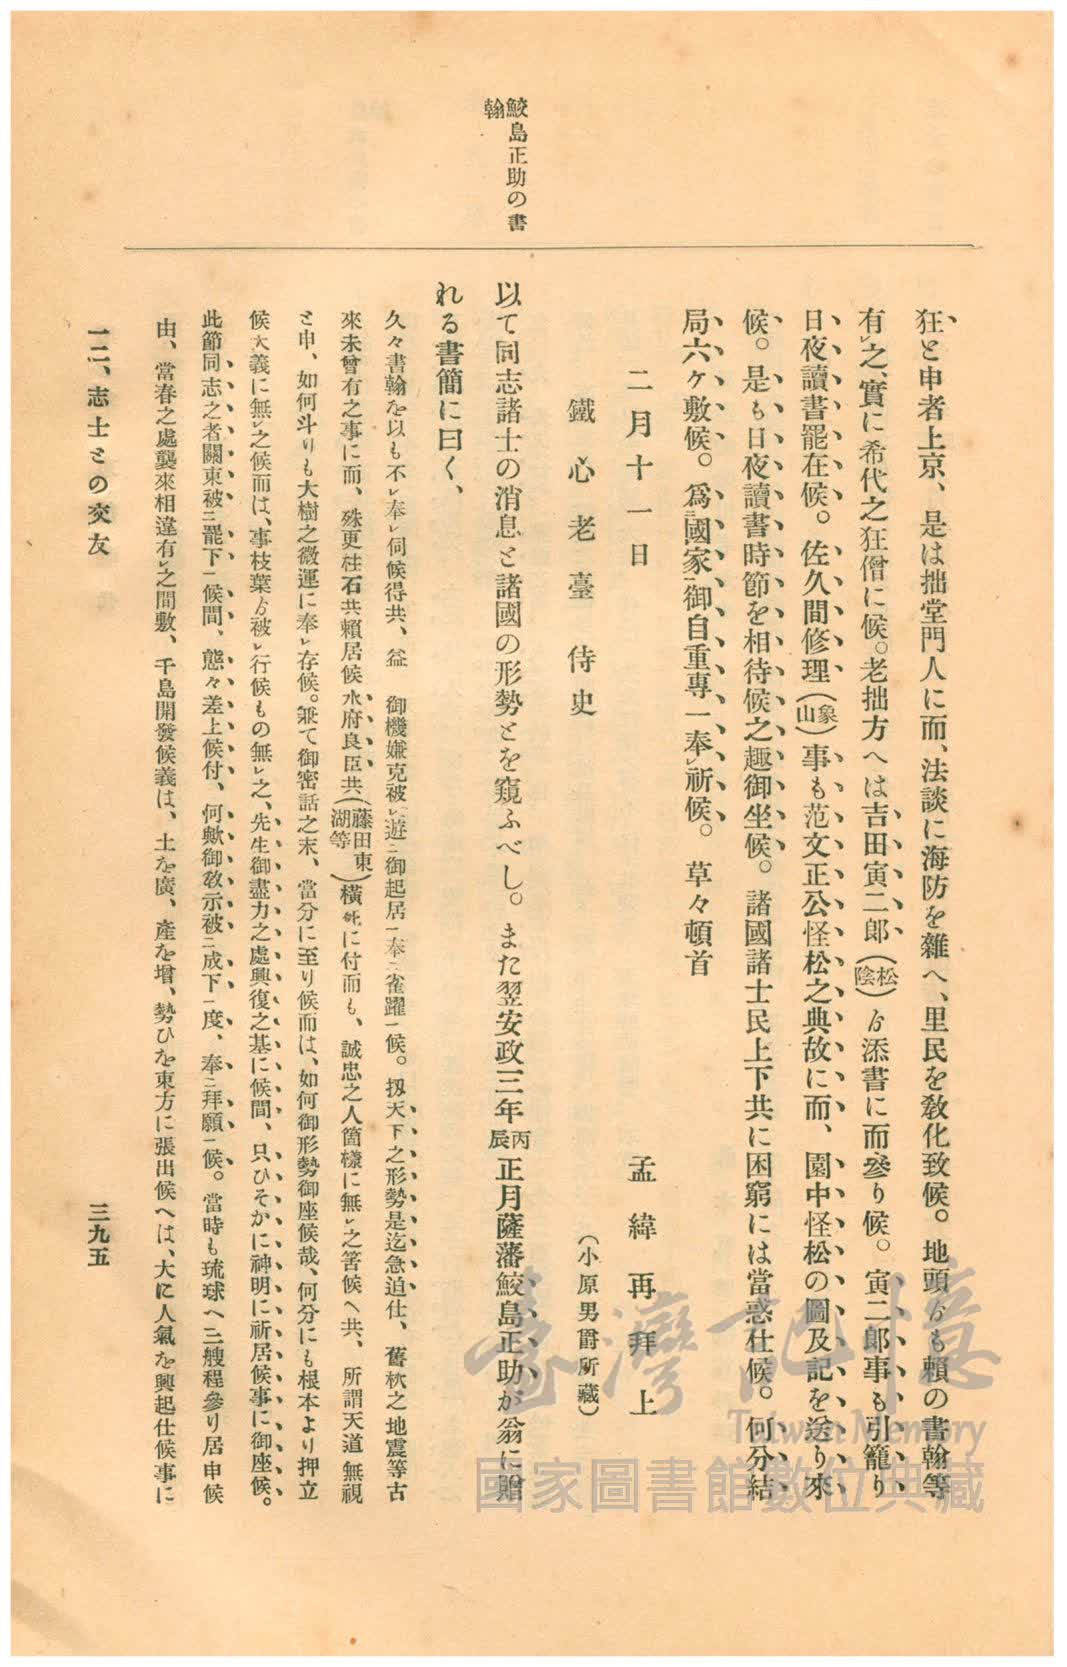 鮫島正助の書
翰
狂と申者上京、是は拙堂門人に而、法談に海防を雜へ、里民を敎化致候。地頭ゟも賴の書翰等
有レ之、實に希代之狂僧に候。老拙方へは吉田寅二郎（松陰）ゟ添書に而參り候。寅二郎事も引籠り
日夜讀書罷在候。佐久間修理（象山）事も范文正公怪松之典故に而、園中怪松の圖及記を送り來
候。是も日夜讀書時節を相待候之趣御坐候。諸國諸士民上下共に困窮には當惑仕候。何分結
局六ケ敷候。爲二國家一御自重專一奉レ祈候。草々頓首
二月十一日
孟緯再拜上
鐵心老臺侍史
（小原男爵所藏）
以て同志諸士の消息と諸國の形勢とを窺ふべし。また翌安政三年丙辰正月薩藩鮫島正助が翁に贈
れる書簡に曰く、
久々書翰を以も不レ奉レ伺候得共、益 御機嫌克被レ遊二御起居一奉二雀躍一候。扨天下之形勢是迄急迫仕、舊秋之地震等古
來未曾有之事に而、殊更柱石共賴居候水府良臣共（藤田東湖等）橫死に付而も、誠忠之人箇樣に無レ之筈候へ共、所謂天道無視
と申、如何斗りも大樹之微運に奉レ存候。兼て御密話之末、當分に至り候而は、如何御形勢御座候哉、何分にも根本より押立
候大義に無レ之候而は、事枝葉ゟ被レ行候もの無レ之、先生御盡力之處興復之基に候間、只ひそかに神明に祈居候事に御座候。
此節同志之者關東被二罷下一候間、態々差上候付、何歟御敎示被二成下一度、奉二拜願一候。當時も琉球へ三艘程參り居申候
由、當春之處襲來相違有レ之間敷、千島開發候義は、土を廣、產を增、勢ひを東方に張出候へは、大に人氣を興起仕候事に
一二、志士との交友
三九五
臺灣記憶
Taiwan Memory
國家圖書館數位典藏